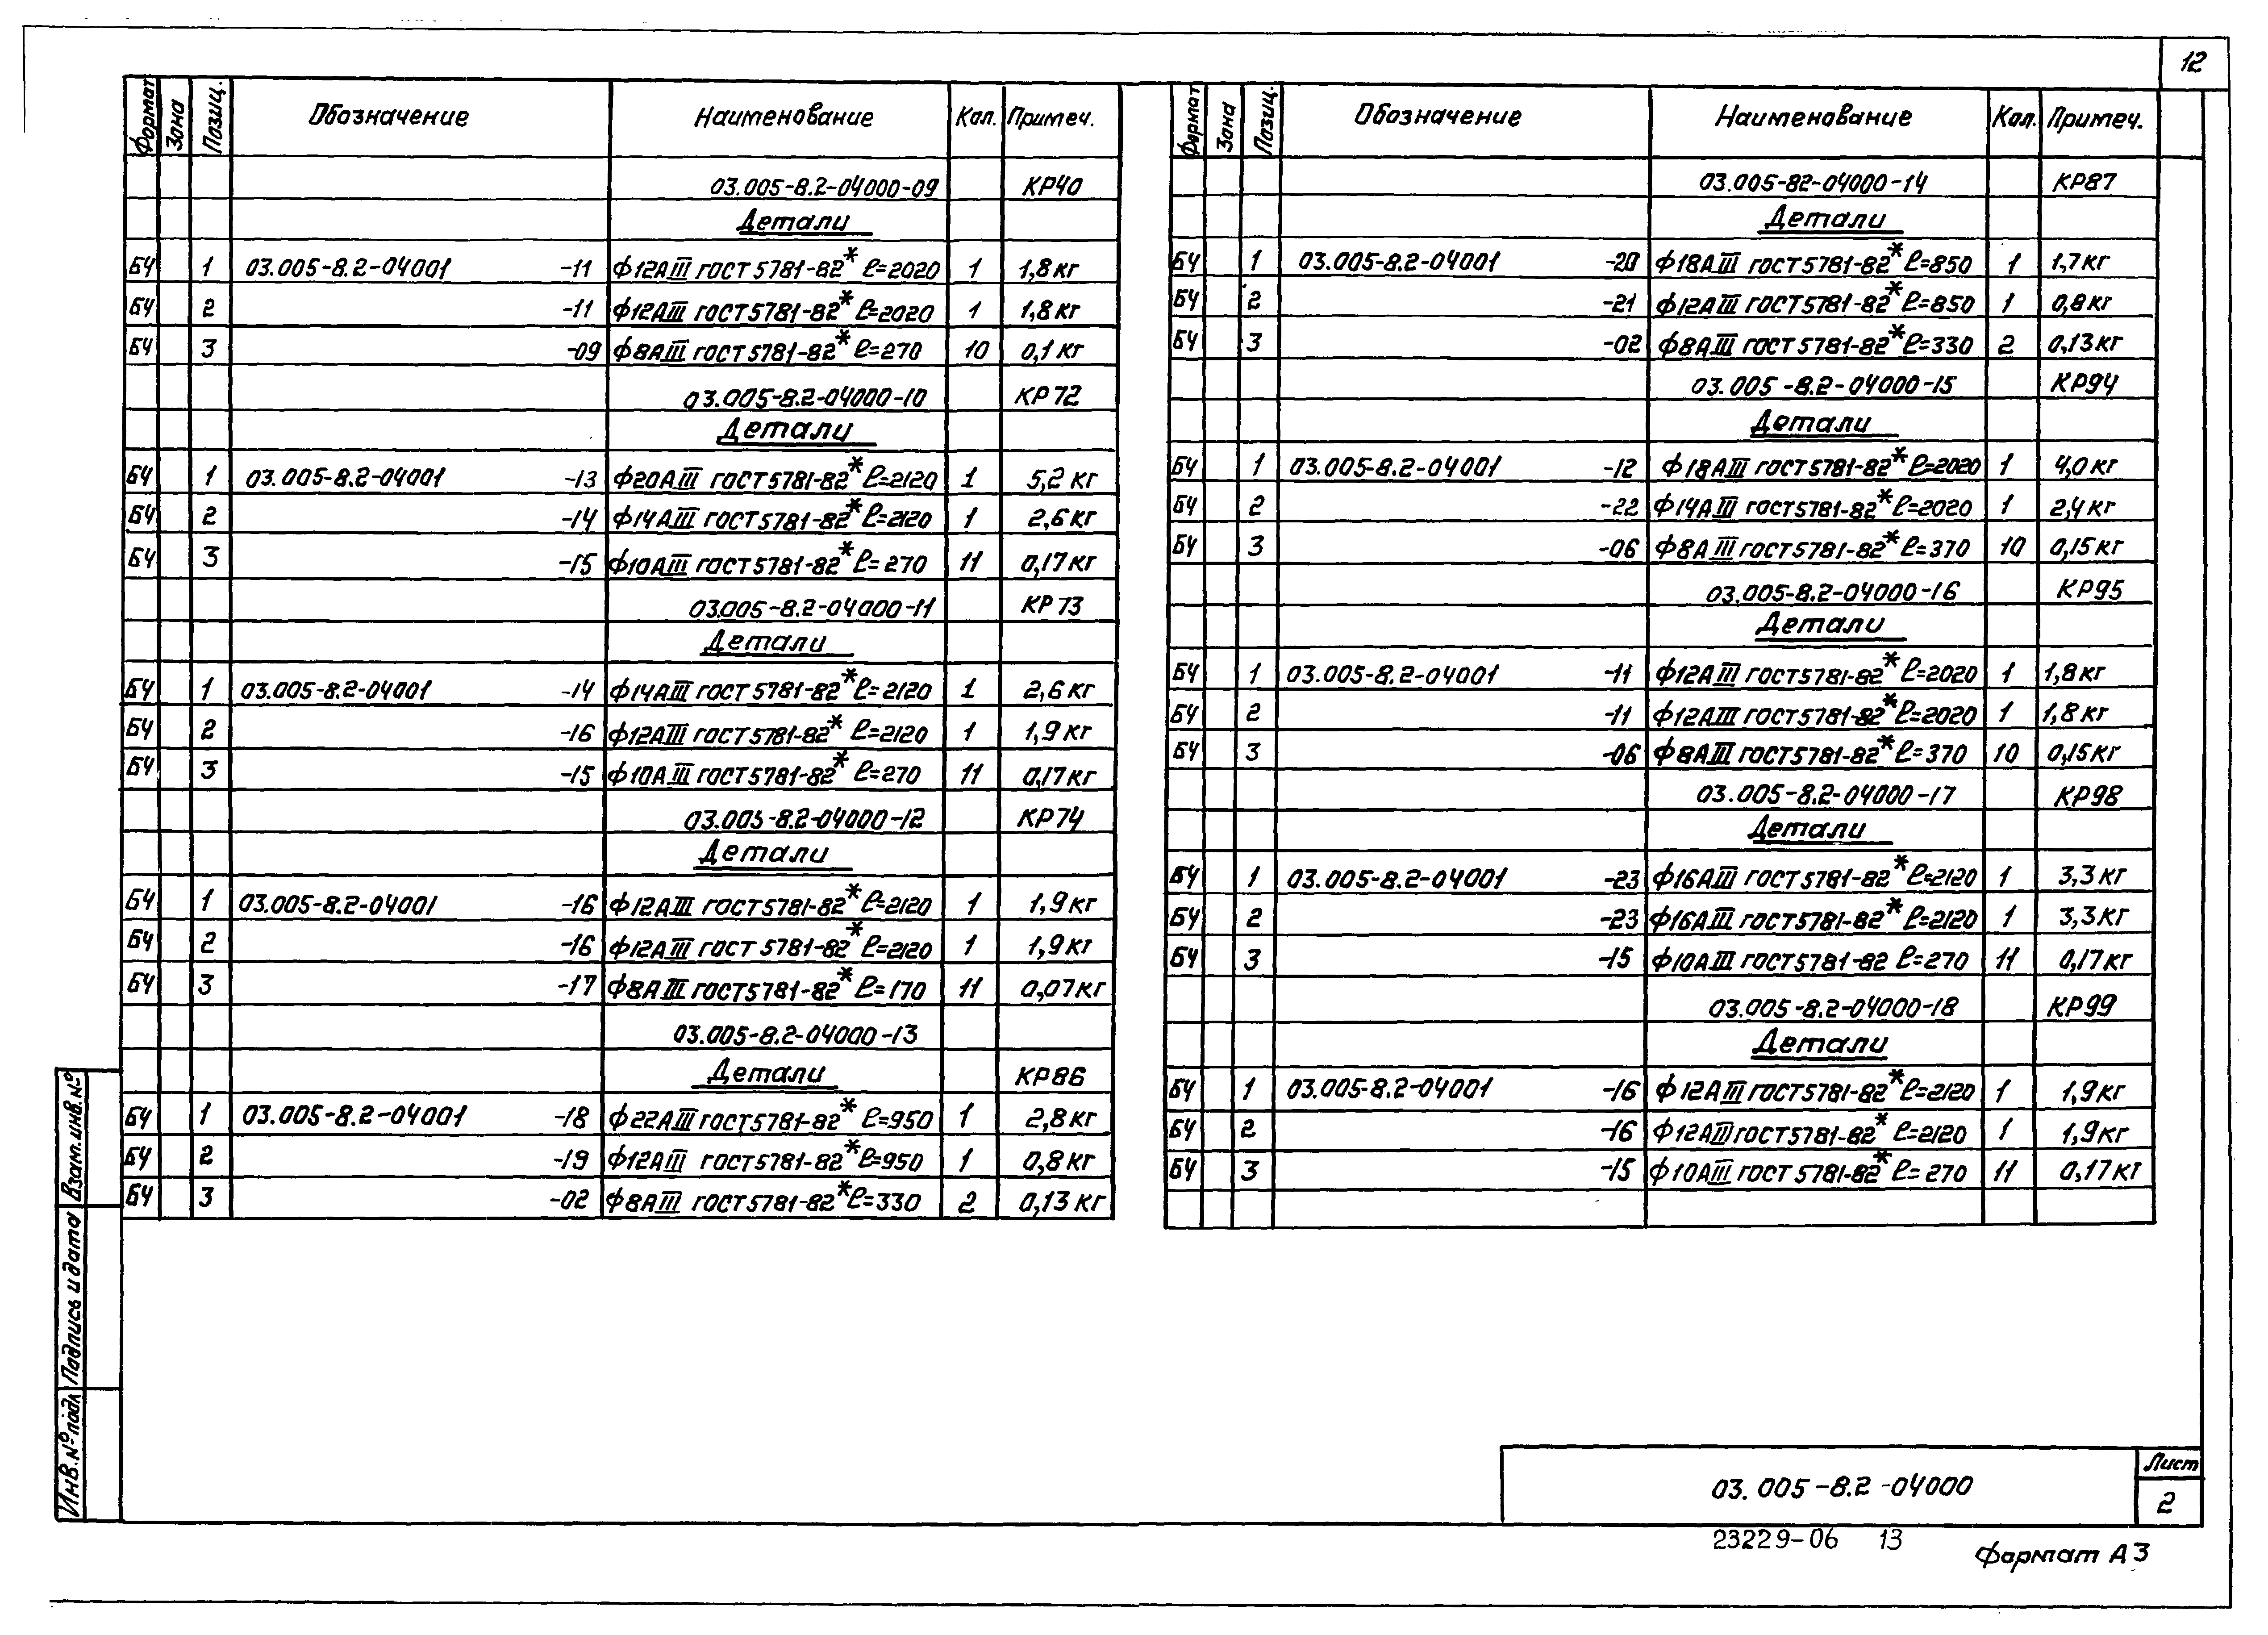 12
Формат Зона Позиц. Обозначение Наименование Кол. Примеч.
03.005-8.2-04000-09 КР40
Детали
БЧ 1 03.005-8.2-04001 -11 Ф12АIII ГОСТ 5781-82* ℓ=2020 1 1,8 кг
БЧ 2 -11 Ф12АIII ГОСТ 5781-82* ℓ=2020 1 1,8 кг
БЧ 3 -09 Ф8АIII ГОСТ 5781-82* ℓ=270 10 0,1 кг
03.005-8.2-04000-10 КР72
Детали
БЧ 1 03.005-8.2-04001 -13 Ф20АIII ГОСТ 5781-82* ℓ=2120 1 5,2 кг
БЧ 2 -14 Ф14АIII ГОСТ 5781-82* ℓ=2120 1 2,6 кг
БЧ 3 -15 Ф10АIII ГОСТ 5781-82* ℓ=270 11 0,17 кг
03.005-8.2-04000-11 КР73
Детали
БЧ 1 03.005-8.2-04001 -14 Ф14АIII ГОСТ 5781-82* ℓ=2120 1 2,6 кг
БЧ 2 -16 Ф12АIII ГОСТ 5781-82* ℓ=2120 1 1,9 кг
БЧ 3 -15 Ф10АIII ГОСТ 5781-82* ℓ=270 11 0,17 кг
03.005-8.2-04000-12 КР74
Детали
БЧ 1 03.005-8.2-04001 -16 Ф12АIII ГОСТ 5781-82* ℓ=2120 1 1,9 кг
БЧ 2 -16 Ф12АIII ГОСТ 5781-82* ℓ=2120 1 1,9 кг
БЧ 3 -17 Ф8АIII ГОСТ 5781-82* ℓ=170 11 0,07 кг
03.005-8.2-04000-13
Детали КР86
БЧ 1 03.005-8.2-04001 -18 Ф22АIII ГОСТ 5781-82* ℓ=950 1 2,8 кг
БЧ 2 -19 Ф12АIII ГОСТ 5781-82* ℓ=950 1 0,8 кг
БЧ 3 -02 Ф8АIII ГОСТ 5781-82* ℓ=330 2 0,13 кг
Формат Зона Позиц. Обозначение Наименование Кол. Примеч.
03.005-82-04000-14 КР87
Детали
БЧ 1 03.005-8.2-04001 -20 Ф18АIII ГОСТ 5781-82* ℓ=850 1 1,7 кг
БЧ 2 -21 Ф12АIII ГОСТ 5781-82* ℓ=850 1 0,8 кг
БЧ 3 -02 Ф8АIII ГОСТ 5781-82* ℓ=330 2 0,13 кг
03.005-8.2-04000-15 КР94
Детали
БЧ 1 03.005-8.2-04001 -12 Ф18АIII ГОСТ 5781-82* ℓ=2020 1 4,0 кг
БЧ 2 -22 Ф14АIII ГОСТ 5781-82* ℓ=2020 1 2,4 кг
БЧ 3 -06 Ф8АIII ГОСТ 5781-82* ℓ=370 10 0,15 кг
03.005-8.2-04000-16 КР95
Детали
БЧ 1 03.005-8.2-04001 -11 Ф12АIII ГОСТ 5781-82* ℓ=2020 1 1,8 кг
БЧ 2 -11 Ф12АIII ГОСТ 5781-82* ℓ=2020 1 1,8 кг
БЧ 3 -06 Ф8АIII ГОСТ 5781-82* ℓ=370 10 0,15 кг
03.005-8.2-04000-17 КР98
Детали
БЧ 1 03.005-8.2-04001 -23 Ф16АIII ГОСТ 5781-82* ℓ=2120 1 3,3 кг
БЧ 2 -23 Ф16АIII ГОСТ 5781-82* ℓ=2120 1 3,3 кг
БЧ 3 -15 Ф10АIII ГОСТ 5781-82 ℓ=270 11 0,17 кг
03.005-8.2-04000-18 КР99
Детали
БЧ 1 03.005-8.2-04001 -16 Ф12АIII ГОСТ 5781-82* ℓ=2120 1 1,9 кг
БЧ 2 -16 Ф12АIII ГОСТ 5781-82* ℓ=2120 1 1,9 кг
БЧ 3 -15 Ф10АIII ГОСТ 5781-82* ℓ=270 11 0,17 кг
Взам. инв. №
Подпись и дата
Инв. № подл
03.005-8.2-04000
Лист
2
23229-06 13
Формат А3